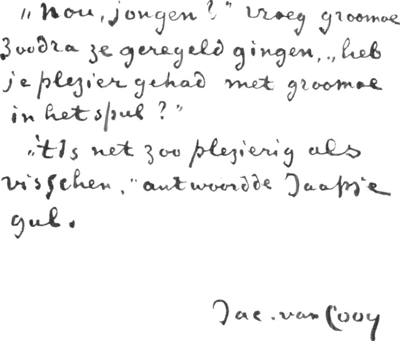 „Nou, jongen?" vroeg groomoe
zoodra ze geregeld gingen, „heb
je plezier gehad met groomoe
in het spul?"
„'t Is net zoo plezierig als
visschen," antwoordde Jaapje
gul.
Jac. van Looy